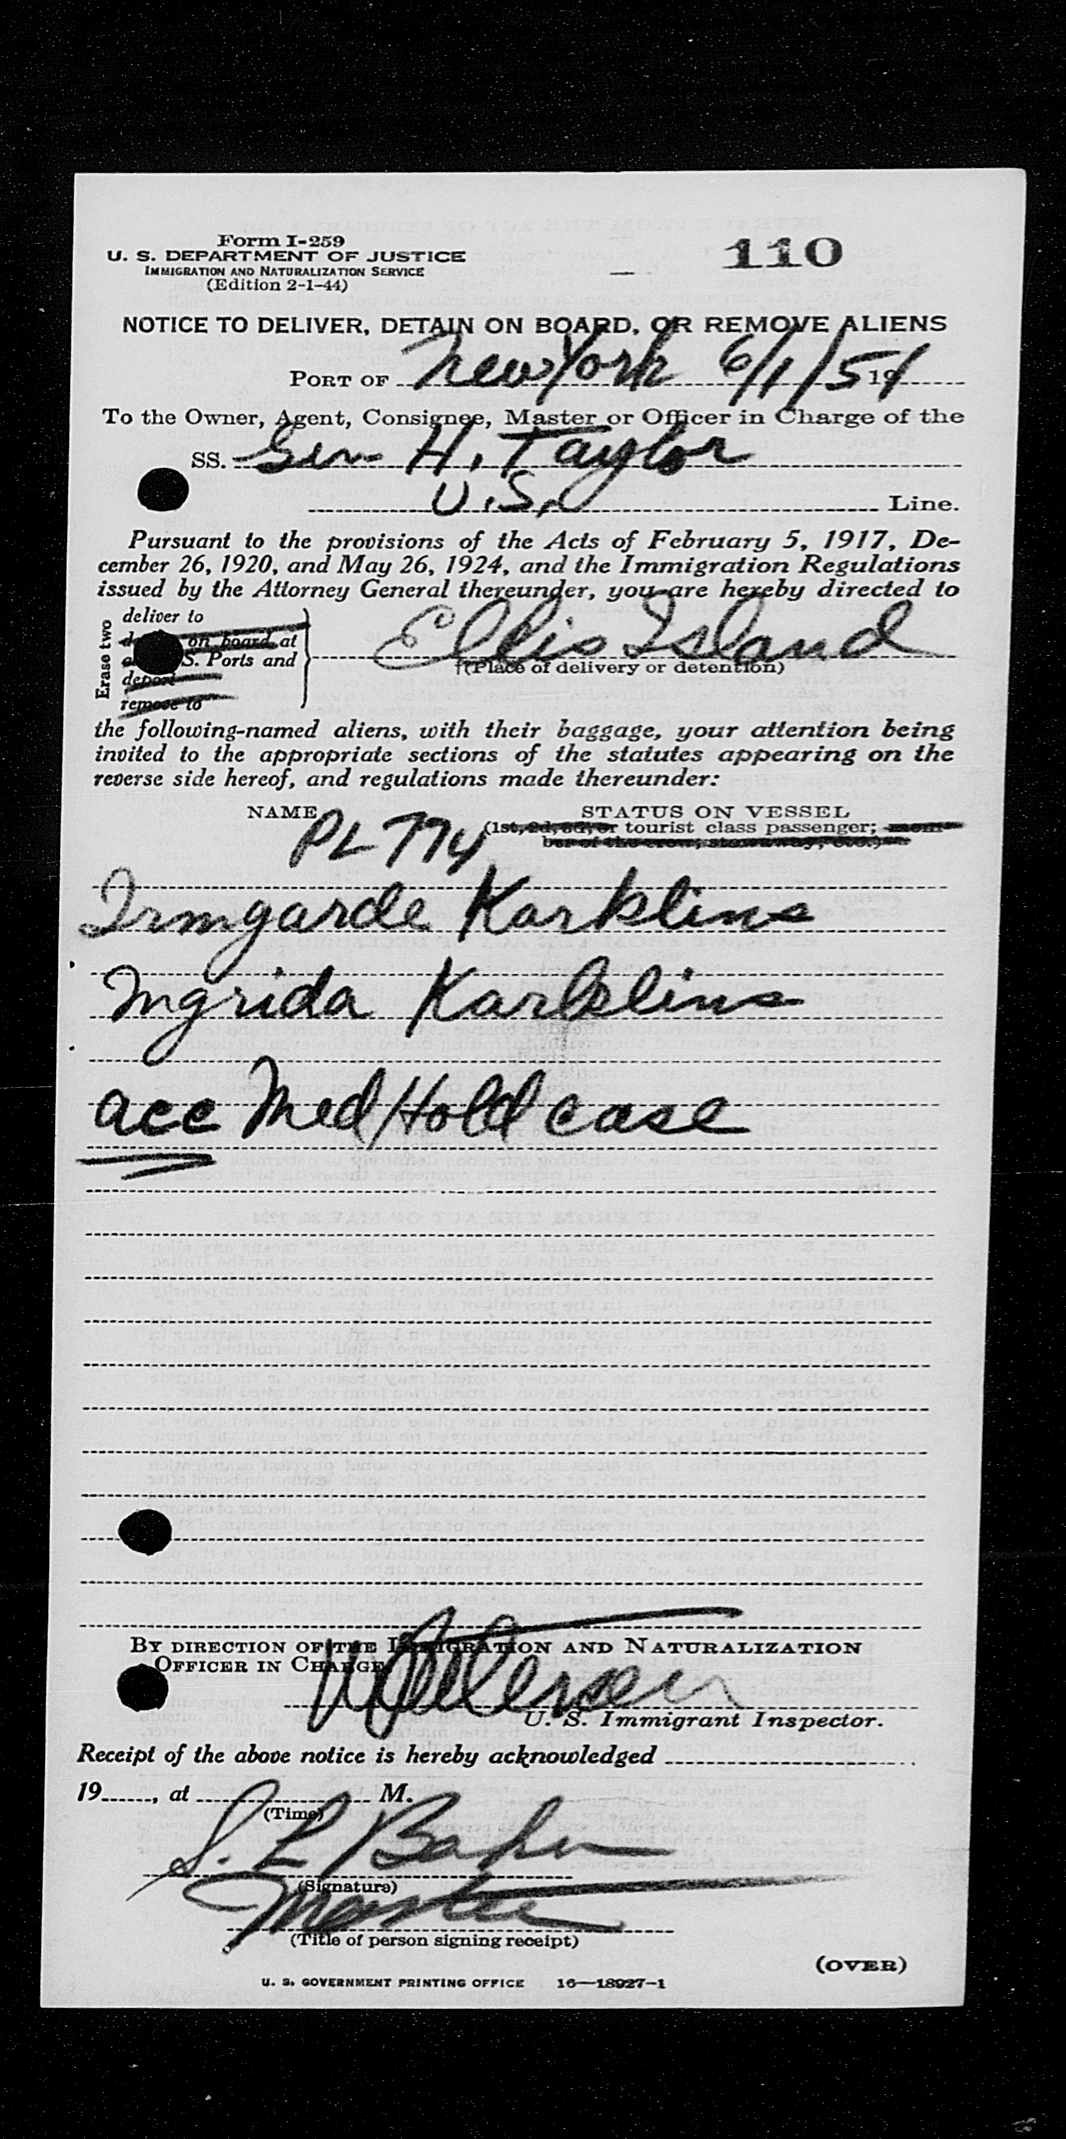 Form I-259
U. S. DEPARTMENT OF JUSTICE
IMMIGRATION AND NATURALIZATION SERVICE
(Edition 2-1-44)
110
NOTICE TO DELIVER, DETAIN ON BOARD, OR REMOVE ALIENS
PORT OF New York 6/1/51 19
To the Owner, Agent, Consignee, Master or Officer in Charge of the
SS. Gen H. Taylor
U.S. Line.
Pursuant to the provisions of the Acts of February 5, 1917, De-
cember 26, 1920, and May 26, 1924, and the Immigration Regulations
issued by the Attorney General thereunder, you are hereby directed to
Erase two
deliver to
on board at
S. Ports and
deport
remove to
Ellis Island
(Place of delivery or detention)
the following-named aliens, with their baggage, your attention being
invited to the appropriate sections of the statutes appearing on the
reverse side hereof, and regulations made thereunder:
NAME STATUS ON VESSEL
PL 774 (1st, 2d, 3d, or tourist class passenger; mem-
ber of the crew, stowaway, etc.)
Irmgarde Karklins
Ingrida Karklins
acc Med Hold case
BY DIRECTION OF THE IMMIGRATION AND NATURALIZATION
OFFICER IN CHARGE
U. S. Immigrant Inspector.
Receipt of the above notice is hereby acknowledged
19, at M.
(Time)
S. L. Baker
(Signature)
Master
(Title of person signing receipt)
(OVER)
U. S. GOVERNMENT PRINTING OFFICE 16—18927-1